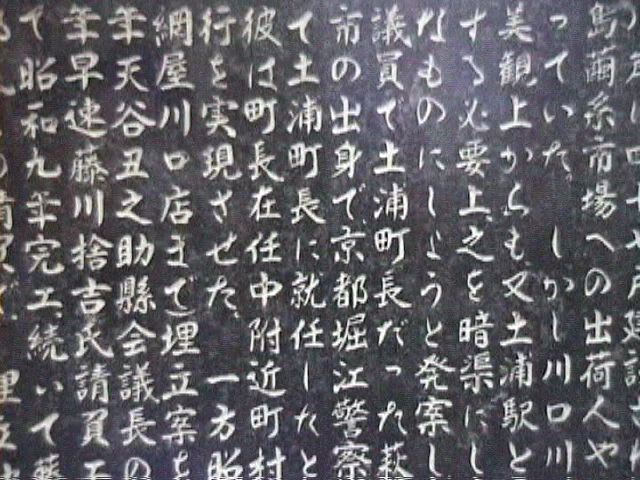 島繭糸市場への出荷人や
っていた。しかし川口川
美観上からも又土浦駅と
する必要上、之を暗渠にし
なものにしようと発案し
議員で土浦町長だった萩
市の出身で京都堀江警察
て土浦町長に就任したと
彼は町長在任中附近町村
行を実現させた。一方昭
網屋川口店まで)埋立案を
年天谷丑之助縣会議長の
年早速藤川捨吉氏請負工
て昭和九年完工、続いて藤